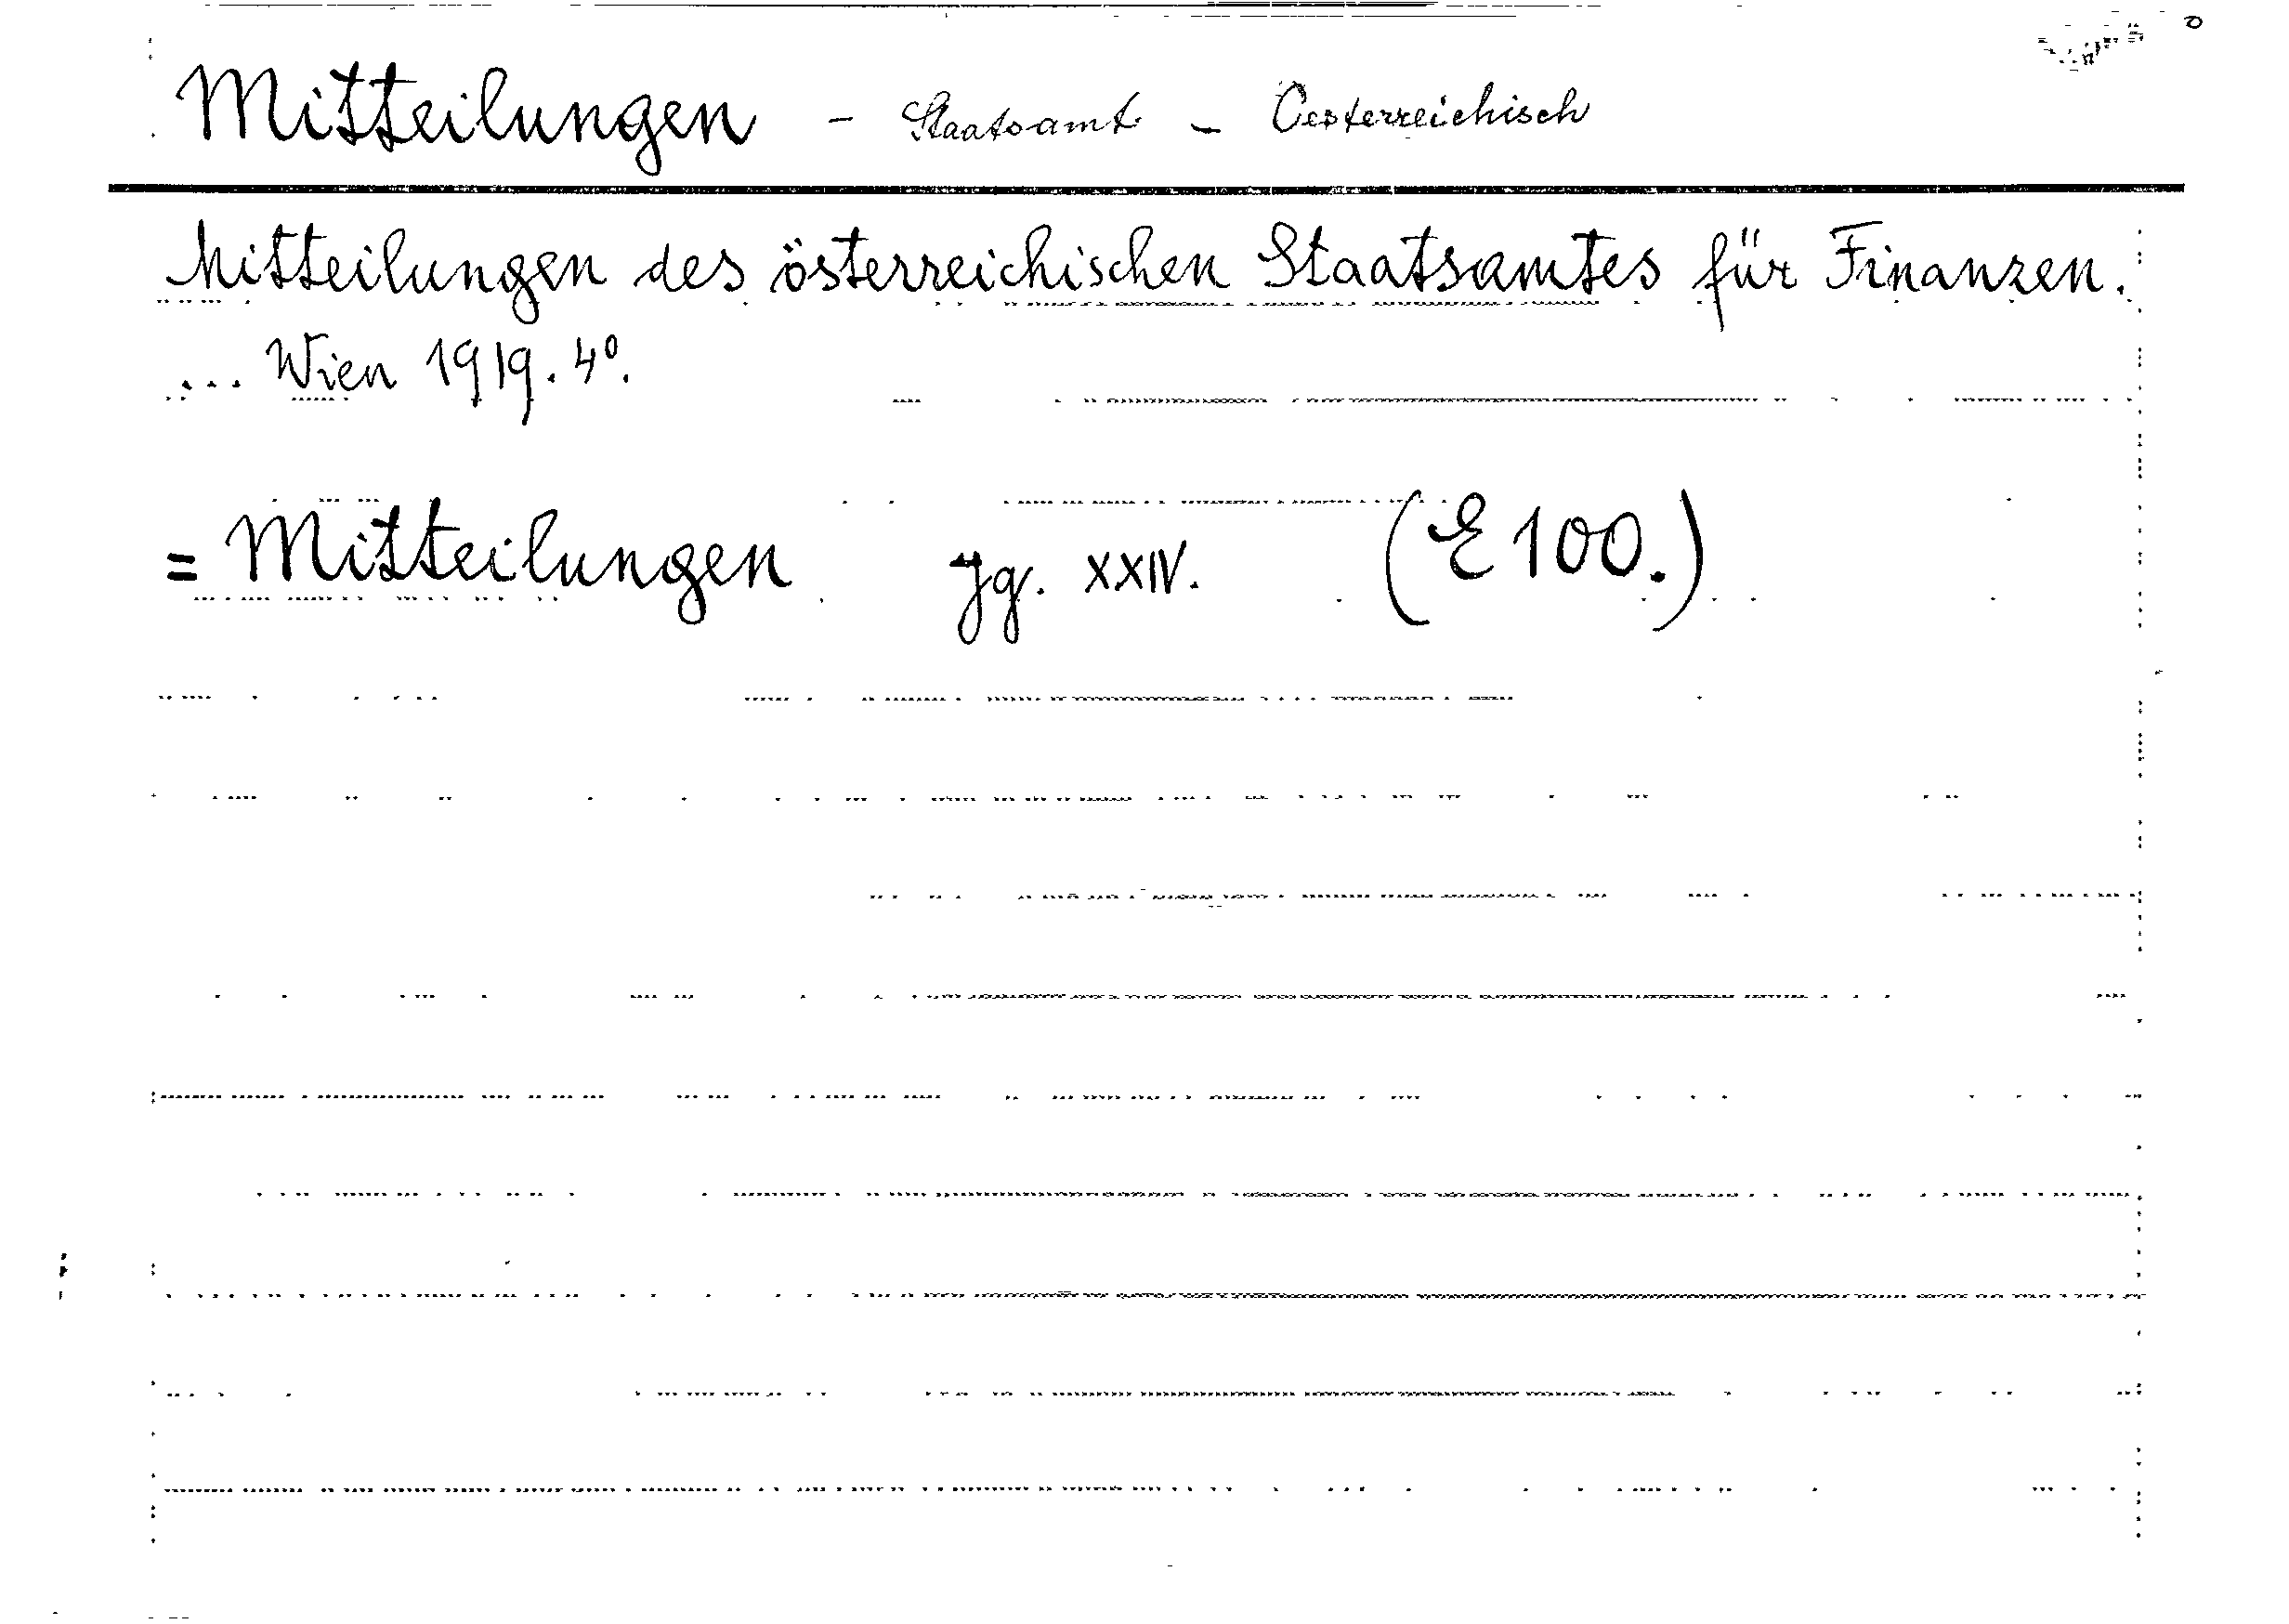 Mitteilungen - Staatsamt - Oesterreichisch
Mitteilungen des österreichischen Staatsamtes für Finanzen.
... Wien 1919. 4º.
= Mitteilungen Jg. XXIV. (E 100.)